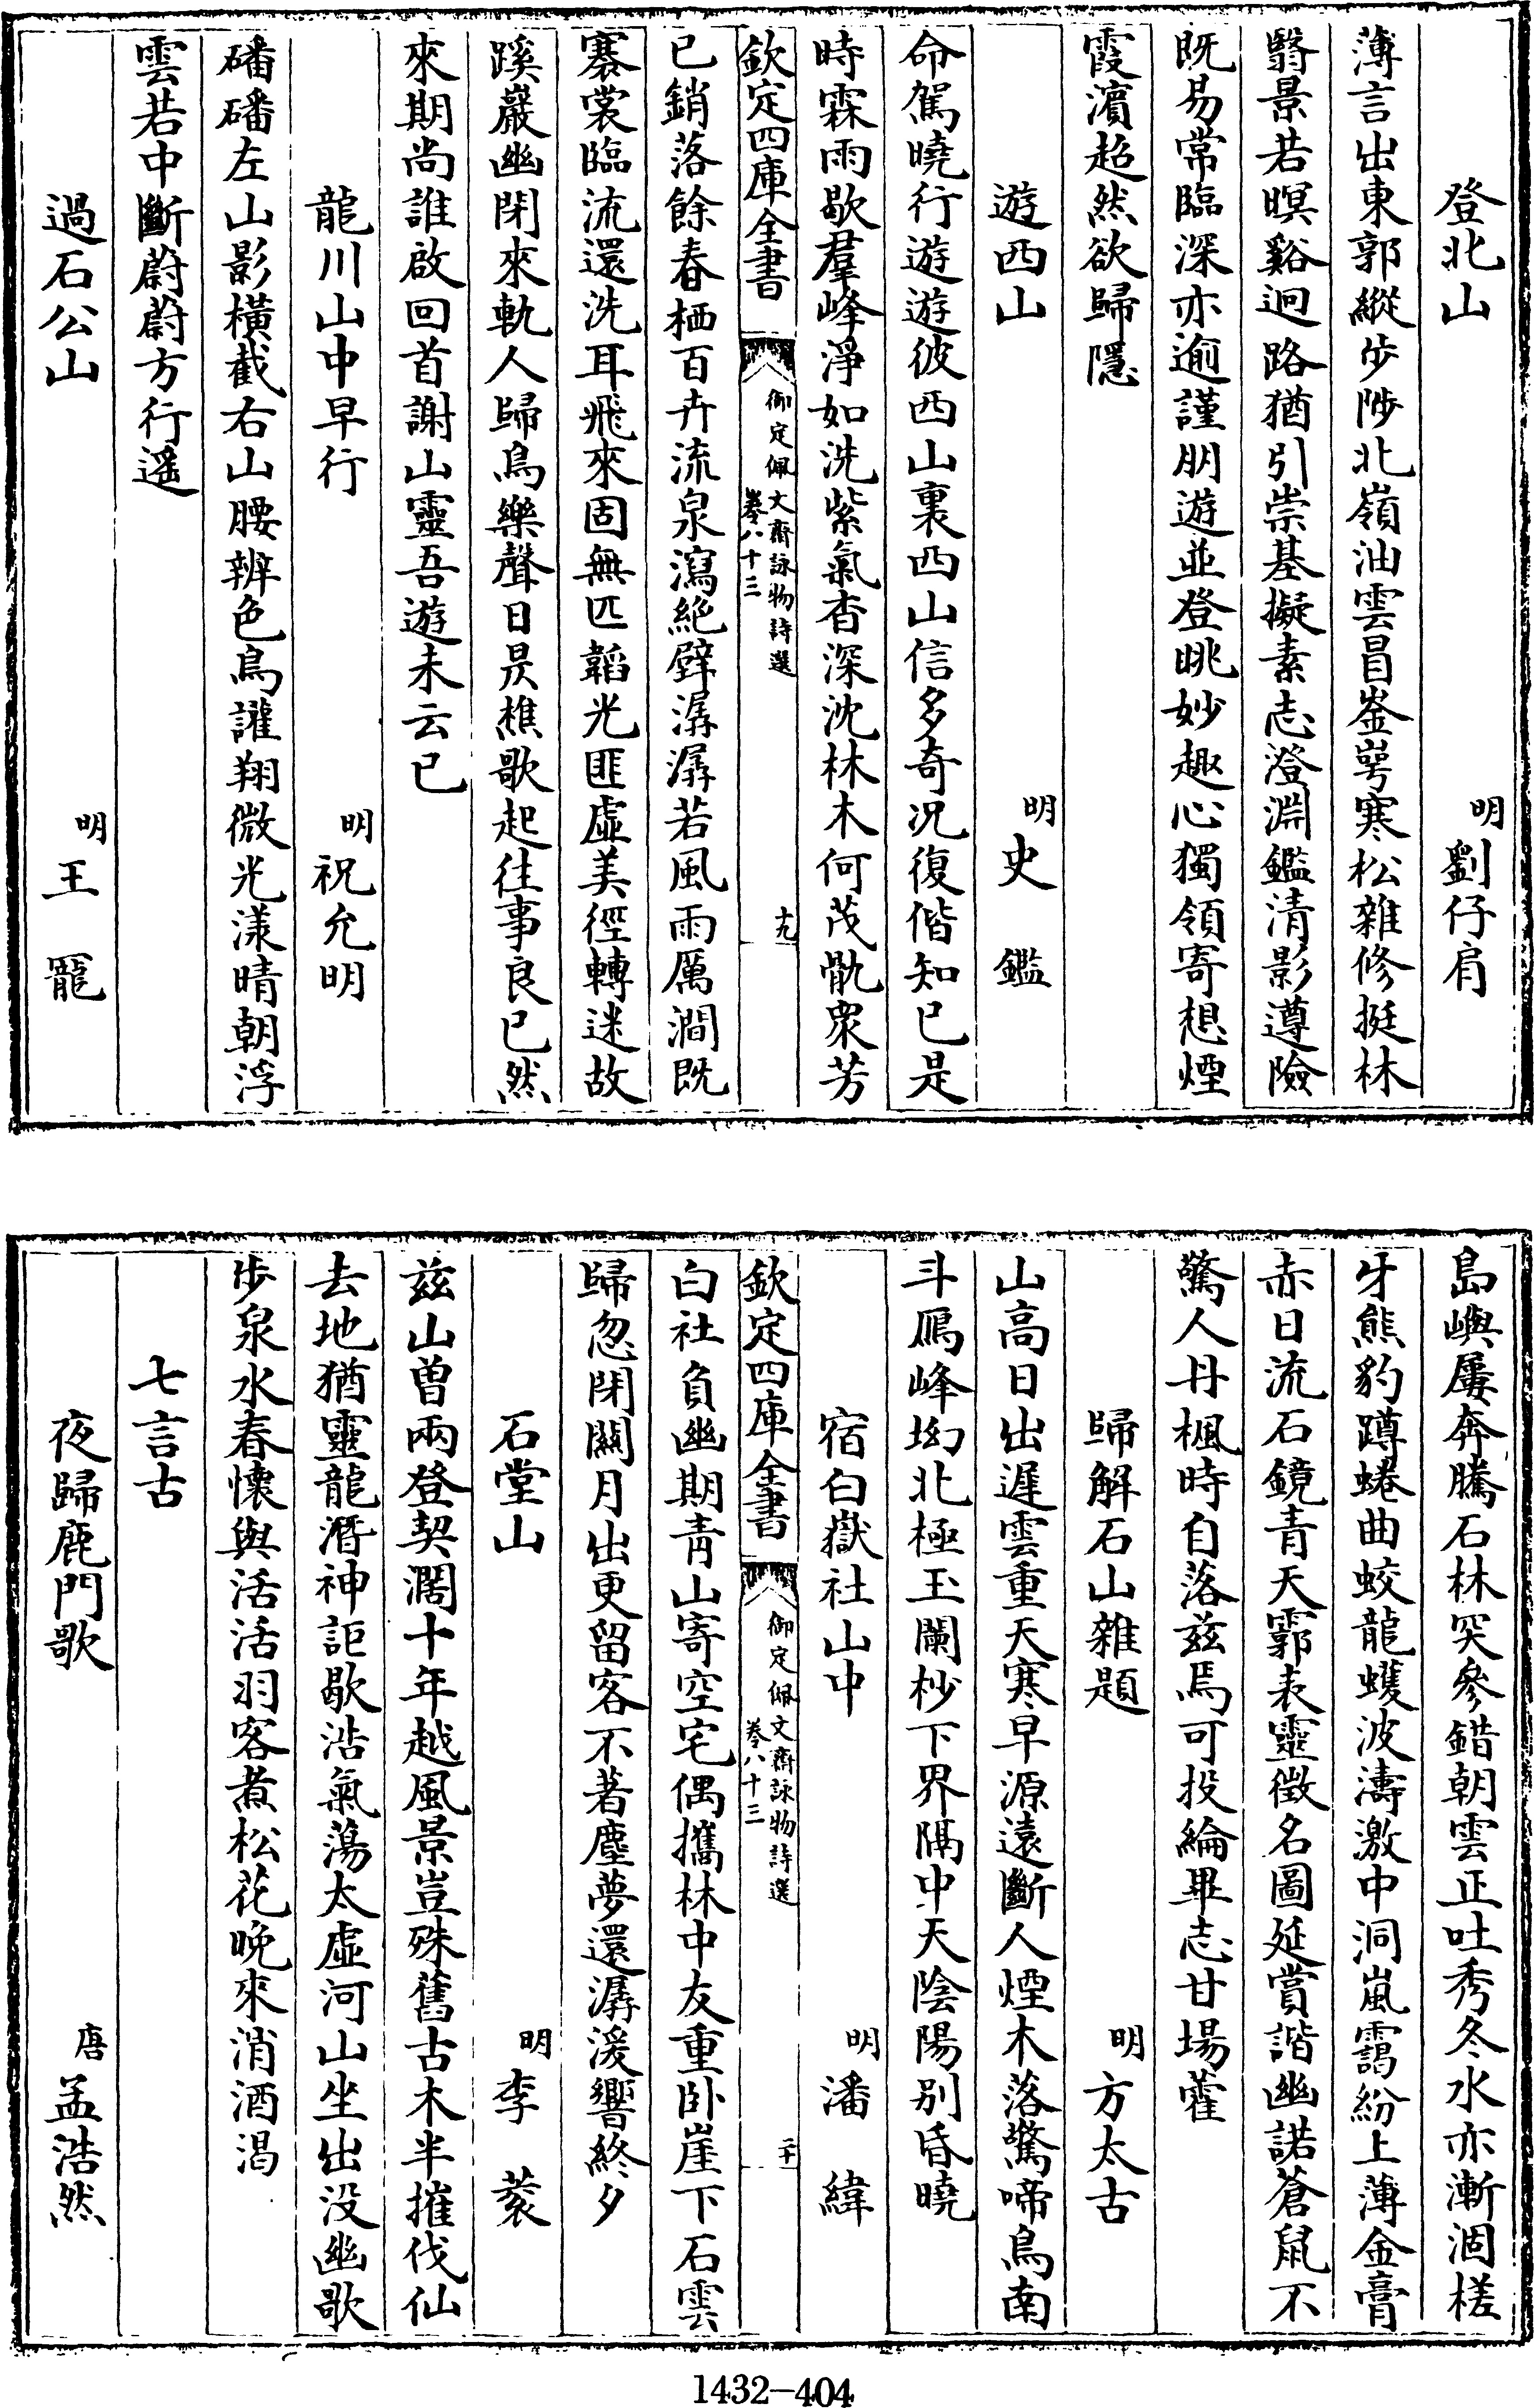 登北山　明劉仔肩
薄言出東郭縱步陟北嶺油雲冒崟崿寒松雜修挺林
翳景若暝谿迥路猶引崇基擬素志澄淵鑑清影遵險
既易常臨深亦逾謹朋遊並登眺妙趣心獨領寄想煙
霞濵超然欲歸隱
遊西山　明史鑑
命駕曉行遊遊彼西山裏西山信多奇况復偕知已是
時霖雨歇羣峰淨如洗紫氣杳深沈林木何茂骩衆芳
欽定四庫全書　御定佩文齋詠物詩選卷八十三　十九
已銷落餘春栖百卉流泉瀉絶壁潺潺若風雨厲澗既
褰裳臨流還洗耳飛來固無匹韜光匪虛美徑轉迷故
蹊巖幽閉來軌人歸鳥樂聲日昃樵歌起徃事良已然
來期尚誰啟回首謝山靈吾遊未云已
龍川山中早行　明祝允明
磻磻左山影橫截右山腰辨色鳥讙翔微光漾晴朝浮
雲若中斷蔚蔚方行遙
過石公山　明王寵
島嶼屢奔騰石林突參錯朝雲正吐秀冬水亦漸涸槎
牙熊豹蹲蜷曲蛟龍蠖波濤激中洞嵐靄紛上薄金膏
赤日流石鏡青天霩表靈徵名圖延賞諧幽諾蒼鼠不
驚人丹楓時自落兹焉可投綸畢志甘場藿
歸解石山雜題　明方太古
山高日出遲雲重天寒早源遠斷人煙木落驚啼鳥南
斗鴈峰坳北極玉闌杪下界隔中天陰陽别昏曉
宿白嶽社山中　明潘緯
欽定四庫全書　御定佩文齋詠物詩選卷八十三　二十
白社負幽期青山寄空宅偶攜林中友重卧崖下石雲
歸忽閉關月出更留客不著塵夢還潺湲響終夕
石堂山　明李蓘
兹山曾兩登契濶十年越風景豈殊舊古木半摧伐仙
去地猶靈龍潛神詎歇沾氣蕩太虛河山坐出没幽歌
步泉水春懷與活活羽客煮松花晚來消酒渴
七言古
夜歸鹿門歌　唐孟浩然
1432-404